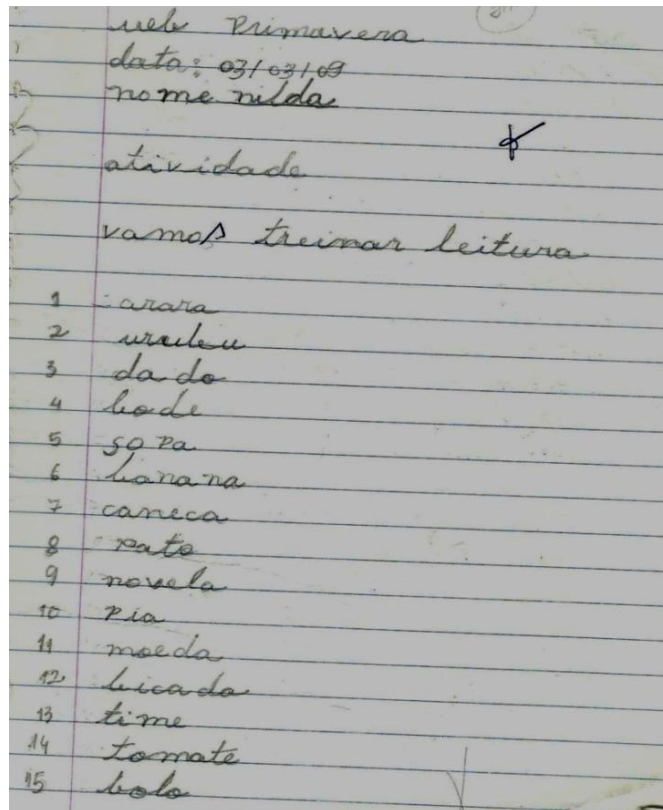 ueb Primavera
data: 03/03/09
nome nilda
atividade
vamos treinar leitura
1 arara
2 urubu
3 dado
4 bode
5 sopa
6 banana
7 caneca
8 pato
9 novela
10 pia
11 moeda
12 bicada
13 time
14 tomate
15 bolo